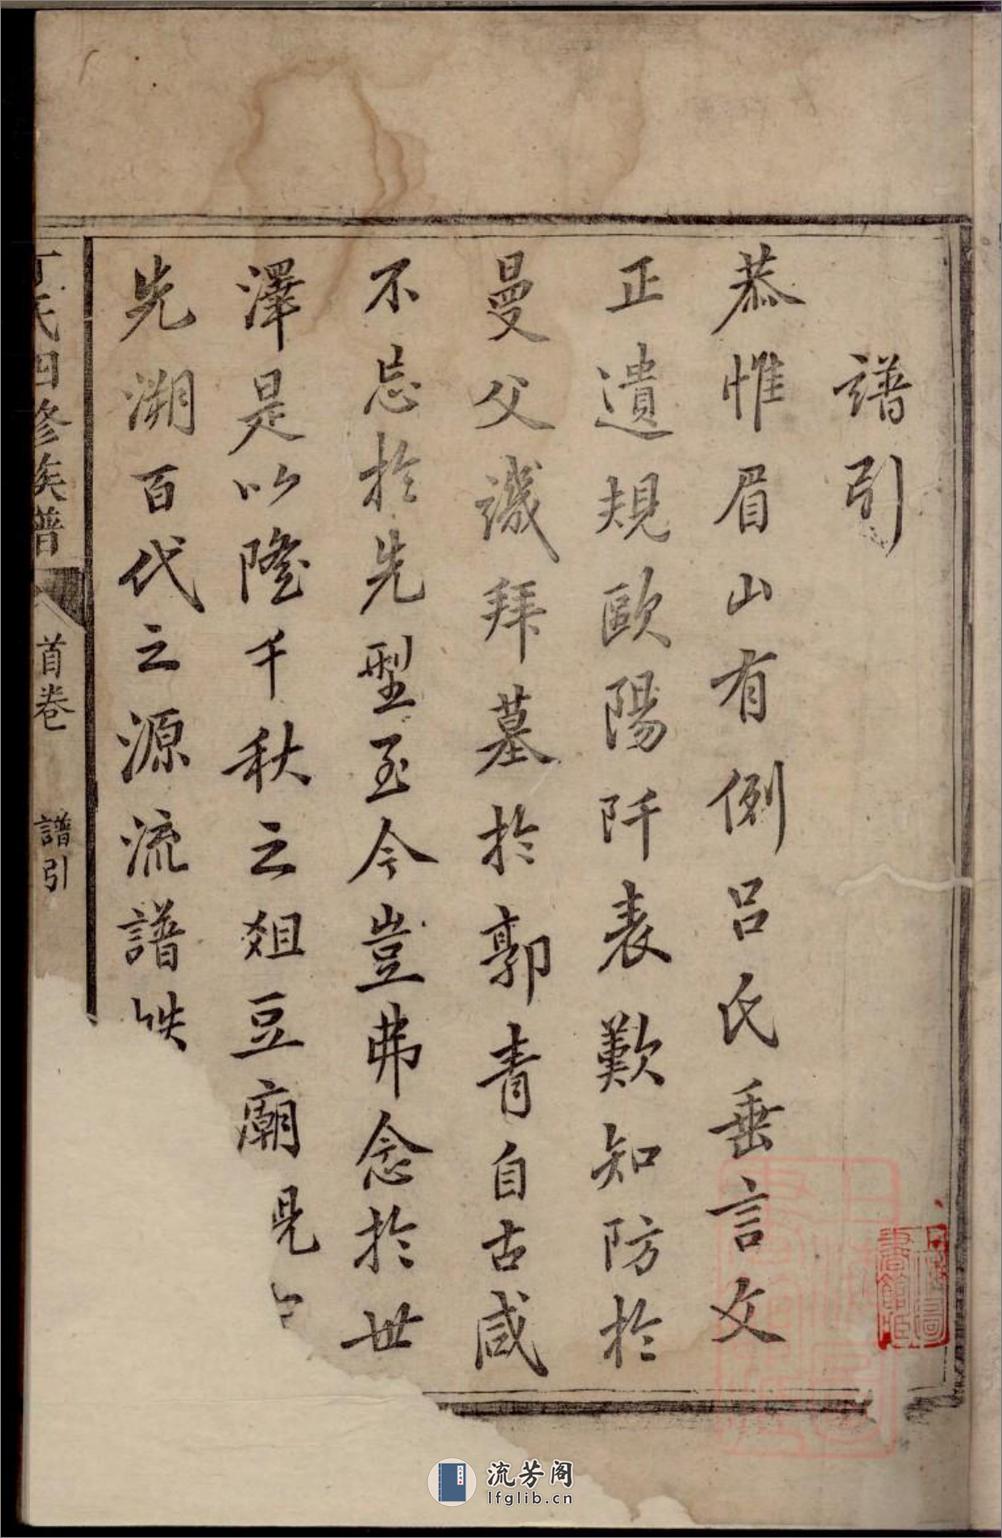 譜引
恭惟眉山有例呂氏垂言文
正遺規歐陽阡表歎知防於
曼父譏拜墓於郭青自古咸
不忘於先型至今豈弗念於世
澤是以隆千秋之俎豆廟見
先溯百代之源流譜牒
丁氏四修族譜
首卷
譜引
流芳阁
lfglib.cn